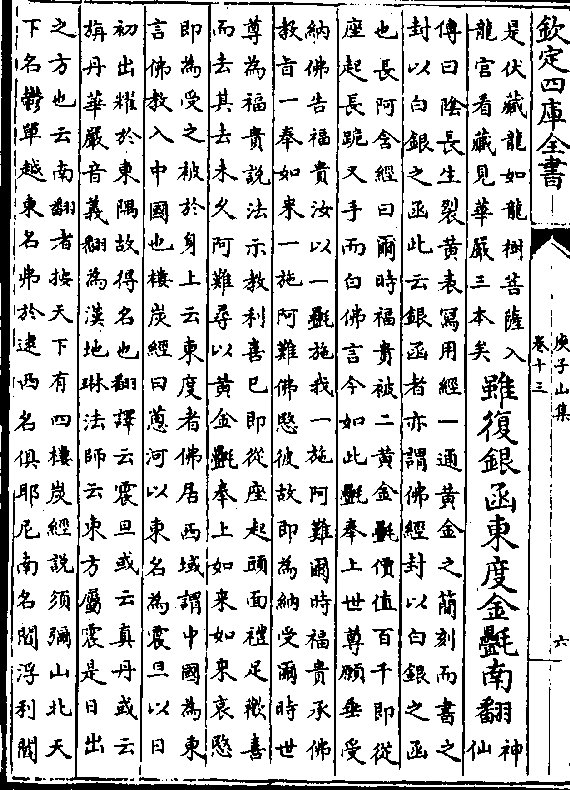 欽定四庫全書
庾子山集
卷十三
六
是伏藏龍如龍樹菩薩入
龍宫看藏見華嚴三本矣
雖復銀函東度金㲲南翻
神
仙
傳曰陰長生裂黄表寫用經一通黄金之簡刻而書之
封以白銀之函此云銀函者亦謂佛經封以白銀之函
也長阿含經曰爾時福貴被二黄金㲲價值百千即從
座起長跪叉手而白佛言今如此㲲奉上世尊願垂受
納佛告福貴汝以一㲲施我一施阿難爾時福貴承佛
教旨一奉如来一施阿難佛愍彼故即為納受爾時世
尊為福貴說法示教利喜已即從座起頭面禮足歡喜
而去其去未久阿難尋以黄金㲲奉上如来如来哀愍
即為受之被於身上云東度者佛居西域謂中國為東
言佛教入中國也樓炭經曰䓗河以東名為震旦以日
初出耀於東隅故得名也翻譯云震旦或云真丹或云
旃丹華嚴音義翻為漢地琳法師云東方屬震是日出
之方也云南翻者按天下有四樓炭經説須彌山北天
下名鬱單越東名弗於逮西名俱耶尼南名閻浮利閻